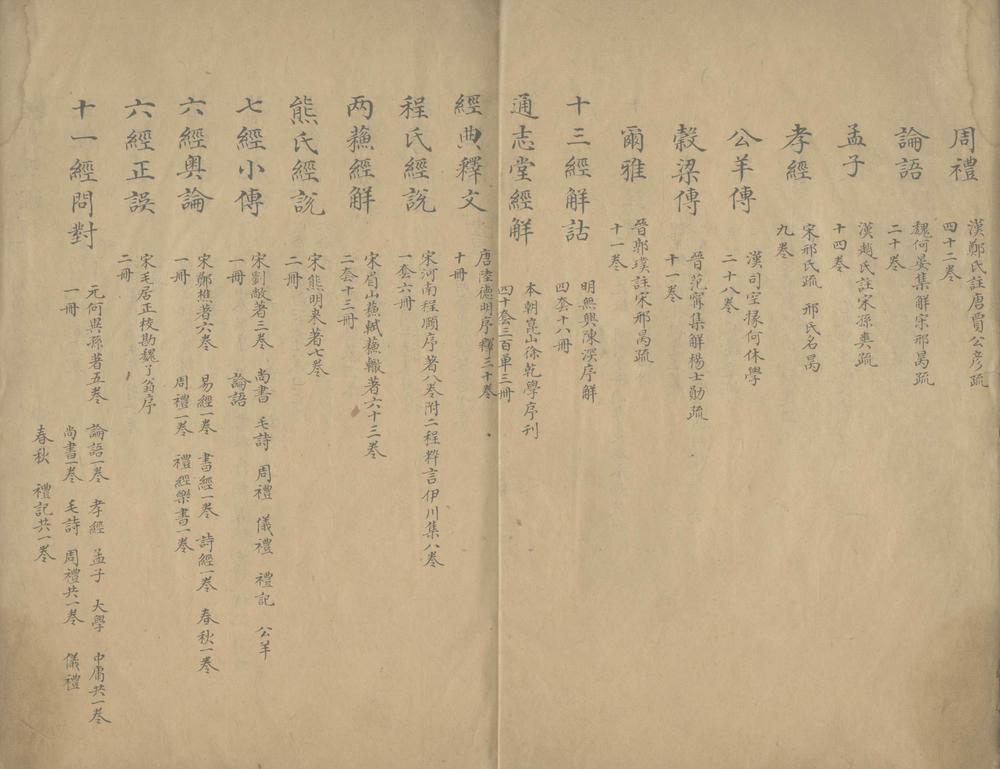 周禮
漢鄭氏註唐賈公彥疏
四十二卷
論語
魏何晏集解宋邢昺疏
二十卷
孟子
漢趙氏註宋孫奭疏
十四卷
孝經
宋邢氏疏 邢氏名昺
九卷
公羊傳
漢司空掾何休學
二十八卷
穀梁傳
晉范甯集解楊士勛疏
十一卷
爾雅
晉郭璞註宋邢昺疏
十一卷
十三經解詁
明無興陳深序解
四套十八冊
通志堂經解
本朝崑山徐乾學序刊
四十套三百單三冊
經典釋文
唐陸德明序釋三十卷
十冊
程氏經說
宋河南程頤序著八卷附二程粹言伊川集八卷
一套六冊
兩蘓經解
宋眉山蘓軾蘓轍著六十三卷
二套十三冊
熊氏經說
宋熊明來著七卷
二冊
七經小傳
宋劉敞著三卷 尚書 毛詩 周禮 儀禮 禮記 公羊
一冊 論語
六經奧論
宋鄭樵著六卷 易經一卷 書經一卷 詩經一卷 春秋一卷
一冊 周禮一卷 禮經樂書一卷
六經正誤
宋毛居正校勘魏了翁序
二冊
十一經問對
元何異孫著五卷 論語一卷 孝經 孟子 大學 中庸共一卷
一冊 尚書一卷 毛詩 周禮共一卷 儀禮
春秋 禮記共一卷